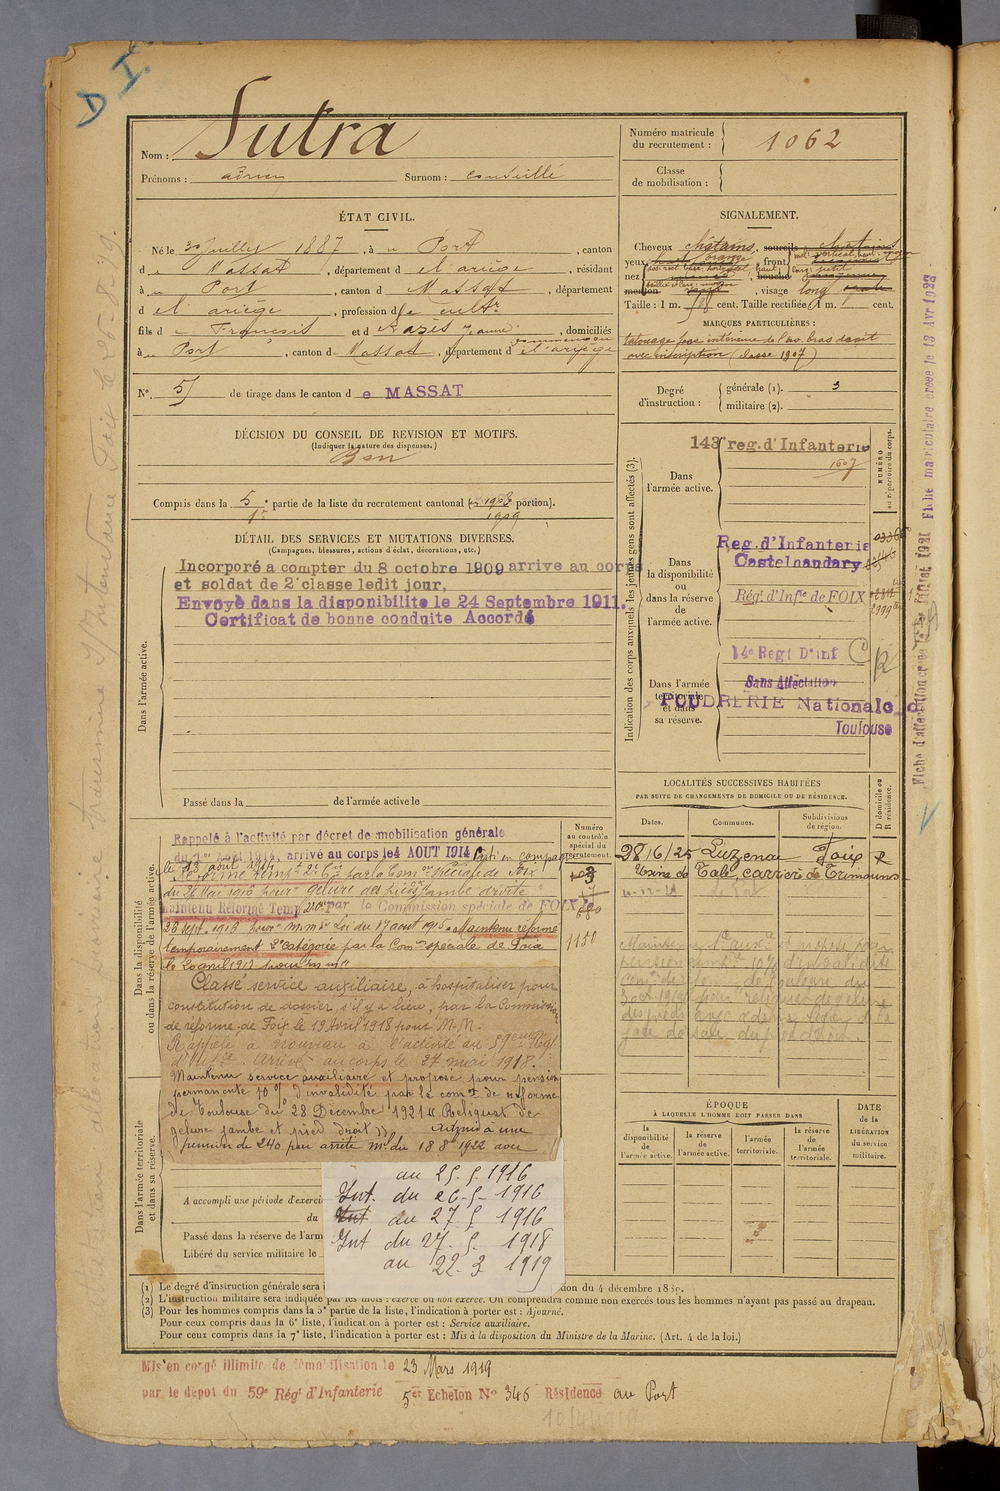 D I.
Nom : Sutra
Prénoms : adrien Surnom : conseillé
Numéro matricule du recrutement : 1062
Classe de mobilisation :
ÉTAT CIVIL.
Né le 30 Juillet 1887, à u Port, canton
d e Massat, département d el'ariège, résidant
à u Port, canton d e Massat, département
d el ariège, profession de cultr
fils d e François et d Razès Jeanne, domiciliés
à u Port, canton d e Massat, département d el'ariège
No. 51 de tirage dans le canton d e MASSAT
DÉCISION DU CONSEIL DE REVISION ET MOTIFS.
(Indiquer la nature des dispenses.)
Bon
Compris dans la 5e partie de la liste du recrutement cantonal ( 1908 portion).
1re 1909
SIGNALEMENT.
Cheveux châtains, sourcils châtains
yeux orange, front
nez , bouche
menton , visage long
Taille : 1 m. cent. Taille rectifiée, 1 m. cent.
MARQUES PARTICULIÈRES :
tatouage face intérieure de l'av. bras droit
avec inscription (classe 1907)
Degré d'instruction : générale (1). 3
militaire (2).
DÉTAIL DES SERVICES ET MUTATIONS DIVERSES.
(Campagnes, blessures, actions d'éclat, décorations, etc.)
Dans l'armée active.
Incorporé a compter du 8 octobre 1909 arrive au corps
et soldat de 2e classe ledit jour,
Envoyé dans la disponibilite le 24 Septembre 1911.
Certificat de bonne conduite Accordé
Passé dans la de l'armée active le
Indication des corps auxquels les jeunes gens sont affectés (3).
NUMÉRO au répertoire du corps.
Dans l'armée active.
143 reg. d'Infanterie
1607
Dans la disponibilité ou dans la réserve de l'armée active.
Reg. d'Infanterie
Castelnaudary
Régt d'Infie de FOIX
Dans l'armée territoriale et dans sa réserve.
14e Regt D'inf
Sans Affectation
POUDRERIE Nationale d
Toulouse
Fiche matriculaire créée le 13 Avr 1923
LOCALITÉS SUCCESSIVES HABITÉES
PAR SUITE DE CHANGEMENTS DE DOMICILE OU DE RÉSIDENCE.
Dates. Communes. Subdivisions de région. D domicile ou R résidence.
28/6/25 Luzenac Foix R
Usine de Talc, carrière de Trimouns
Dans la disponibilité ou dans la réserve de l'armée active.
Numéro au contrôle spécial du recrutement.
Rappelé à l'activité par décret de mobilisation générale
du 1er Août 1914, arrivé au corps le 4 AOUT 1914 Parti en campagne
le 13 août 1914
Réformé tempt 2e Cie par la Comon spéciale de Foix
du 26 Mai 1916 pour gelure des pieds jambe droite
Maintenu Réformé Temp par la Commission spéciale de FOIX le
26 sept. 1916 pour m. mve Loi du 17 aout 1915 Maintenu réformé
temporairement 2e catégorie par la Comon spéciale de Foix
le 20 avril 1917 pour m. mve
1150
Classé service auxiliaire, à hospitaliser pour
constitution de dossier, s'il y a lieu, par la Commission
de réforme de Foix le 19 Avril 1918 pour M. M.
Rappelé à nouveau à l'activité au 59eme Regt
d'Infie. Arrivé au corps le 27 mai 1918.
Maintenu service auxiliaire et proposé pour pension
permanente 10 % d'invalidité par la comon de réforme
de Toulouse du 28 Décembre 1921 « Reliquat de
gelure jambe et pied droit ». Admis à une
pension de 240 par arrêté mel du 18 8 1922 avec
Dans l'armée territoriale et dans sa réserve.
A accompli une période d'exerci
du
Passé dans la réserve de l'arm
Libéré du service militaire le
au 25. 5. 1916
Int. du 26-5- 1916
Int du 27. 5 1916
Int du 27. 5. 1918
au 22. 3 1919
ÉPOQUE
À LAQUELLE L'HOMME DOIT PASSER DANS
la disponibilité de l'armée active. la réserve de l'armée active. l'armée territoriale. la réserve de l'armée territoriale.
DATE de la LIBÉRATION du service militaire.
(1) Le degré d'instruction générale sera i tion du 4 décembre 1889.
(2) L'instruction militaire sera indiquée par les mots : exercé ou non exercé. On comprendra comme non exercés tous les hommes n'ayant pas passé au drapeau.
(3) Pour les hommes compris dans la 5e partie de la liste, l'indication à porter est : Ajourné.
Pour ceux compris dans la 6e liste, l'indication à porter est : Service auxiliaire.
Pour ceux compris dans la 7e liste, l'indication à porter est : Mis à la disposition du Ministre de la Marine. (Art. 4 de la loi.)
Mis en congé illimité de démobilisation le 23 Mars 1919
par le dépot du 59e Régt d'Infanterie 5er Echelon No 346 Résidence au Port